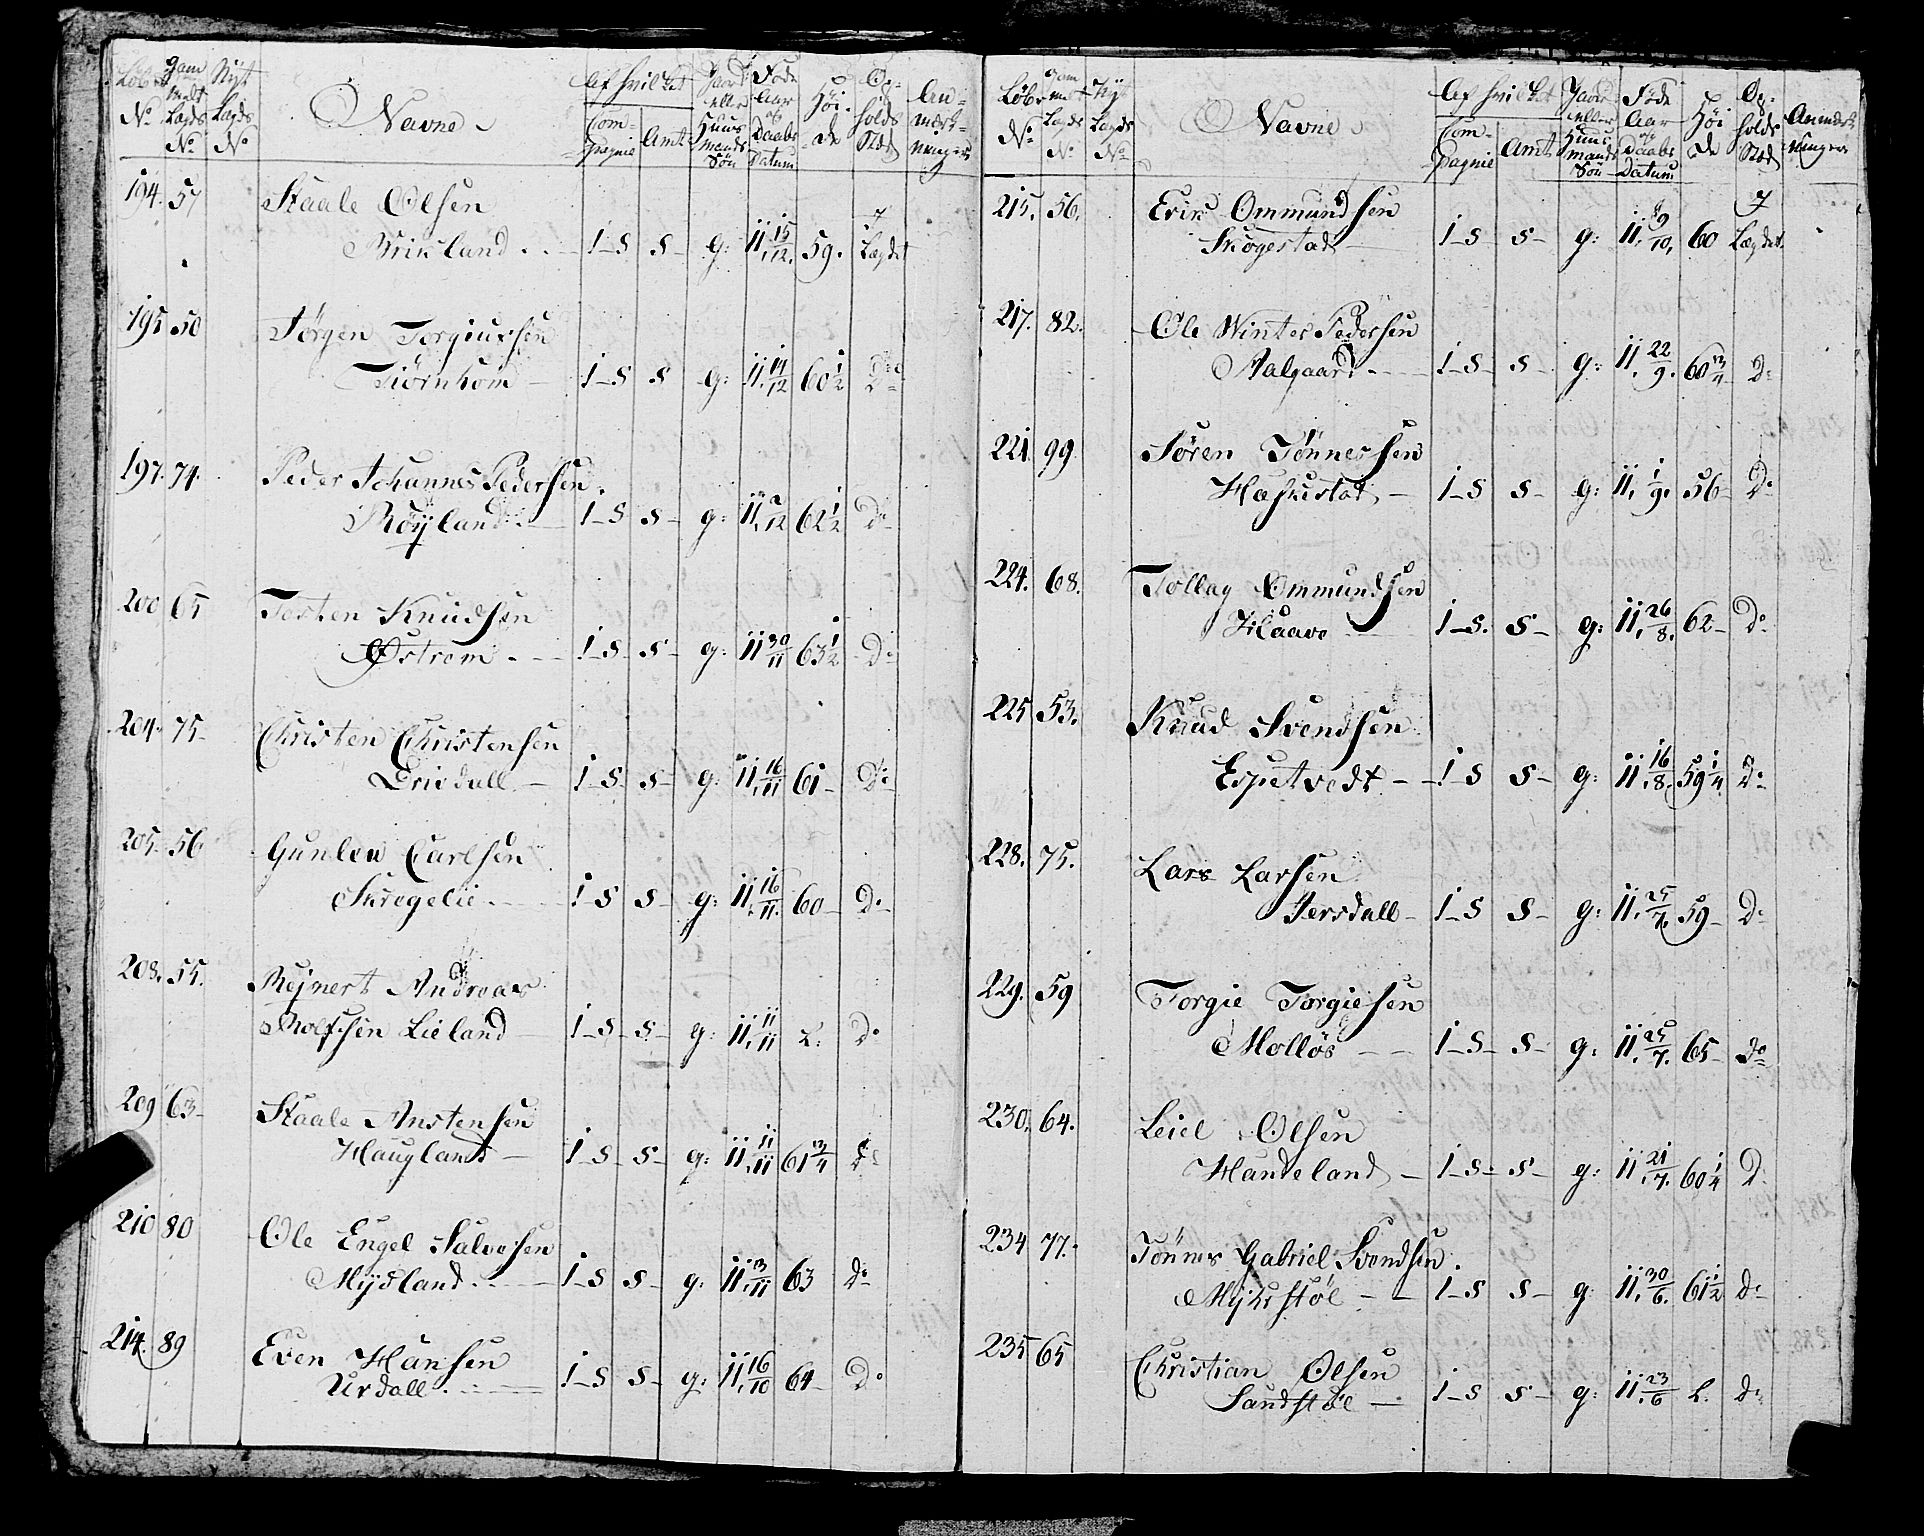 Løb No gam melt Lægds No Nÿt Lægds No Navne Af hvilket Com- pagnie Amt Gaard eller Huus mands Søn Føde Aar og Daabs Datum Høi- de Op- holds Stæd An- mærk- ninger
194. 57 Staale Olsen
Wrikland 1-S S g: 11. 15/12. 59. i Lægdet
195 50 Jørgen Torgiussen
Tiørnhom 1-S S g: 11. 14/12 60 1/2 Do
197. 74. Peder Johannes Pedersen
Røÿland 1-S S g: 11. 2/12 62 1/2 Do
200 65 Torsten Knudsen
Østrem 1-S S g: 11 30/11 63 1/2 Do
204. 75 Christen Christensen
Eriedall 1-S S g: 11. 16/11 61 Do
205. 56 Gunleu Carlsen
Skregelie 1-S S g: 11. 16/11. 60 Do
208. 55. Mejnert Andreas
Rolfsen Lieland 1-S S g: 11. 11/11 L: Do
209 63 Staale Anstensen
Haugland 1-S S g: 11. 11/11 61 3/4 Do
210 80 Ole Engel Salvesen
Mÿdland 1-S S g: 11. 3/11 63 Do
214. 89 Even Hansen
Urdall 1-S S g: 11. 16/10 64 Do
Løb No gam melt Lægds No Nÿt Lægds No Navne Af hvilket Com- pagnie Amt Gaard eller Huus mands Søn Føde Aar og Daabs Datum Høi de Op- holds Stæd Anmærk- ninger
215. 56. Erik Ommundsen
Skogestad 1-S S g: 11. /10. 60 i Lægdet.
217. 82. Ole Winter Pedersen
Aalgaard 1-S S g: 11. 22/9. 60 3/4 Do
221. 99 Søren Tønnessen
Hæskestad 1-S S g: 11. 1/9. 56 Do
224. 68. Tollag Ommundsen
Haave 1-S. S g: 11. 26/8. 62 Do
225 53. Knud Svendsen
Espetvedt 1-S S g: 11. 16/8. 59 1/4 Do
228. 75. Lars Larsen
Jersdall 1-S S g: 11. 25/7. 59 Do
229. 59 Torgie Torgiesen
Molløs 1-S S g: 11. 25/7. 65 Do
230. 64. Leiel Olsen
Handeland 1-S S g: 11. 21/7. 60 1/4 Do
234 77. Tønnes Gabriel Svendsen.
Mÿkestøl 1-S S g: 11. 30/6. 61 1/2 Do
235 65 Christian Olsen
Sandstøl 1-S S g: 11. 23/6 L. Do